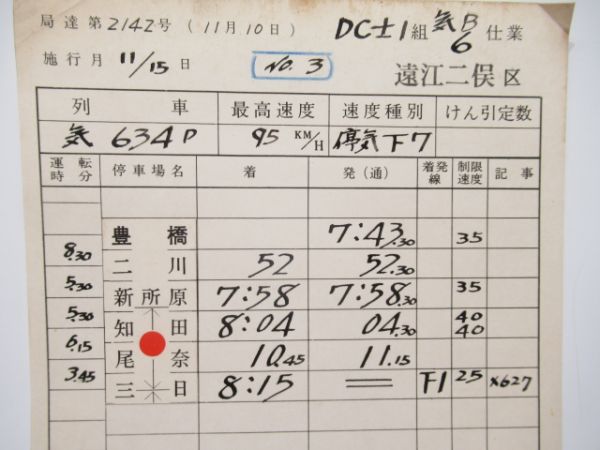 局達第2142号(11月10日) DC士1組気B6仕業
施行月11/15日 No.3 遠江二俣区
列車 最高速度 速度種別 けん引定数
気634P 95KM/H 停気下7
運転時分 停車場名 着 発(通) 着発線 制限速度 記事
豊橋 7:43.30 35
8.30
二川 52 52.30
5.30
新所原 7:58 7:58.30 35
5.30
知田 8:04 04.30 40 40
6.15
尾奈 10.45 11.15
3.45
三日 8:15 F1 25 ×627